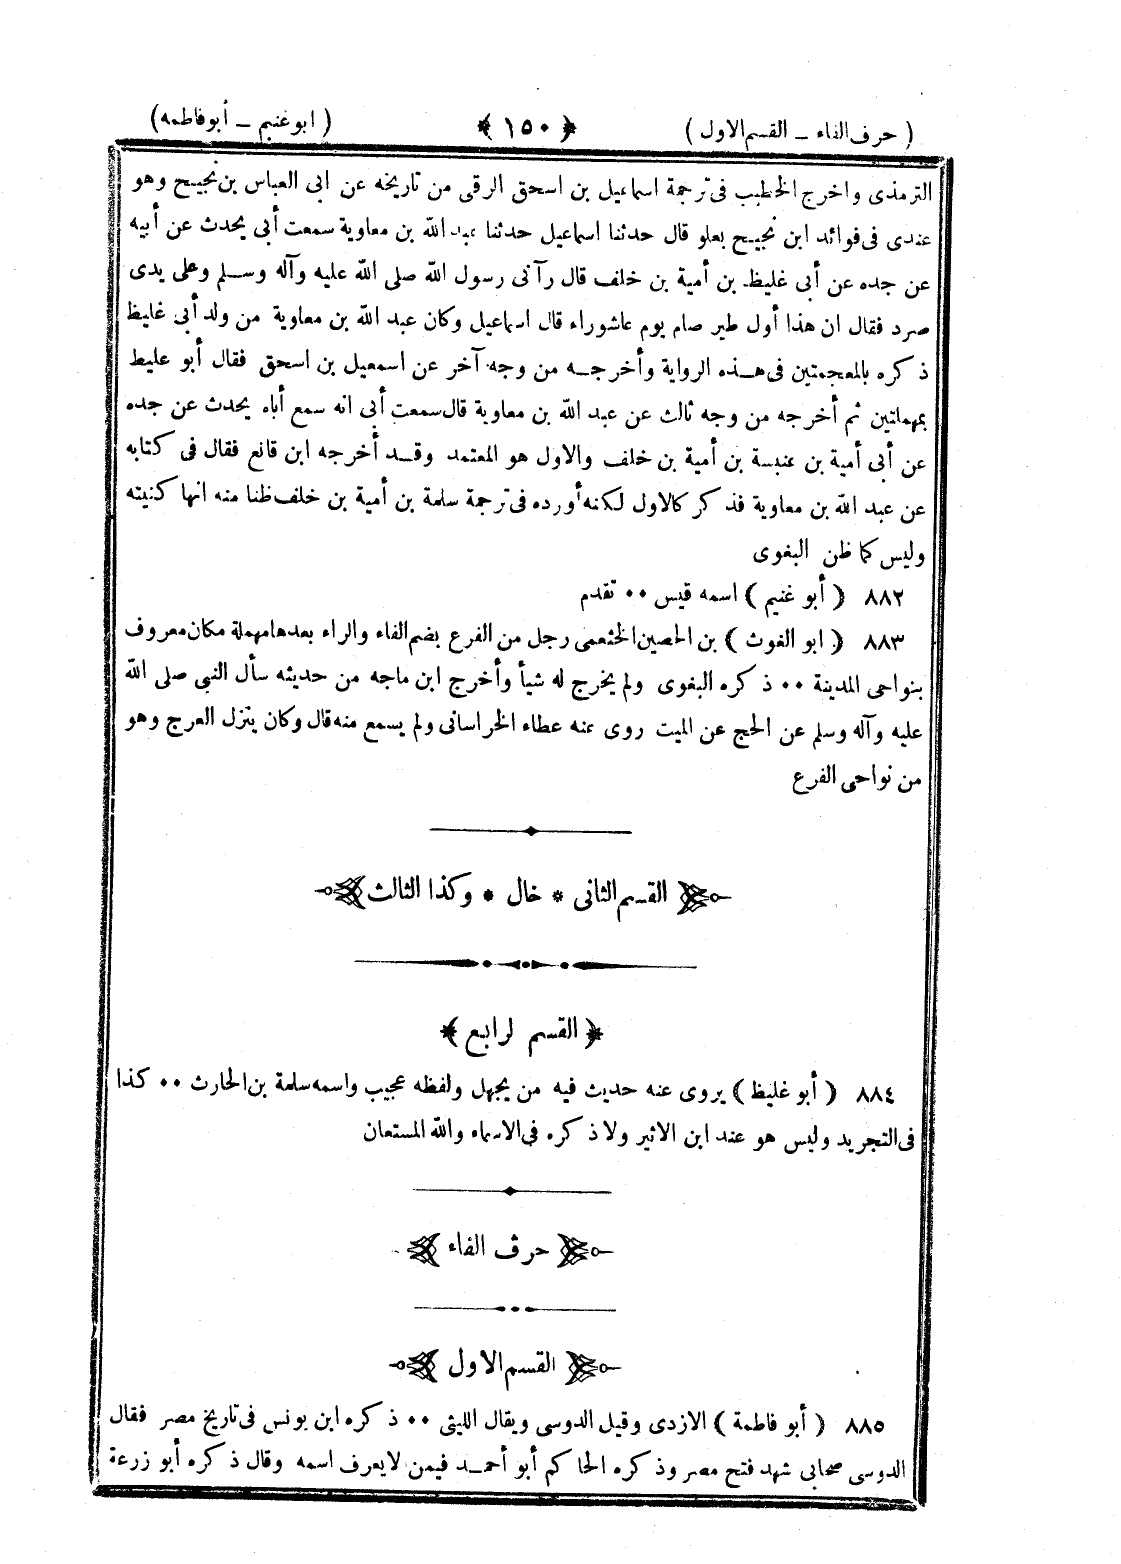 ( حرف الفاء ــ القسم الاول ) ﴿ ١٥٠ ﴾ ( ابو غنيم ــ أبو فاطمه )
الترمذى واخرج الخطيب فى ترجمة اسماعيل بن اسحق الرقى من تاريخه عن ابى العباس بن نجيح وهو
عندى فى فوائد ابن نجيح بعلو قال حدثنا اسماعيل حدثنا عبد الله بن معاوية سمعت أبى يحدث عن أبيه
عن جده عن أبى غليظ بن أمية بن خلف قال رآنى رسول الله صلى الله عليه وآله وسلم وعلى يدى
صرد فقال ان هذا أول طير صام يوم عاشوراء قال اسماعيل وكان عبد الله بن معاوية من ولد أبى غليظ
ذكره بالمعجمتين فى هذه الرواية وأخرجه من وجه آخر عن اسمعيل بن اسحق فقال أبو عليط
بمهملتين ثم أخرجه من وجه ثالث عن عبد الله بن معاوية قال سمعت أبى انه سمع أباه يحدث عن جده
عن أبى أمية بن عنبسة بن أمية بن خلف والاول هو المعتمد وقد أخرجه ابن قانع فقال فى كتابه
عن عبد الله بن معاوية فذكر كالاول لكنه أورده فى ترجمة سلمة بن أمية بن خلف ظنا منه انها كنيته
وليس كما ظن البغوى
٨٨٢ ( أبو غنيم ) اسمه قيس ٠٠ تقدم
٨٨٣ ( ابو الغوث ) بن الحصين الخثعمى رجل من الفرع بضم الفاء والراء بعدها مهملة مكان معروف
بنواحى المدينة ٠٠ ذكره البغوى ولم يخرج له شيأ وأخرج ابن ماجه من حديثه سأل النبى صلى الله
عليه وآله وسلم عن الحج عن الميت روى عنه عطاء الخراسانى ولم يسمع منه قال وكان ينزل العرج وهو
من نواحى الفرع
القسم الثانى * خال * وكذا الثالث
﴿ القسم لرابع ﴾
٨٨٤ ( أبو غليظ ) يروى عنه حديث فيه من يجهل ولفظه عجيب واسمه سلمة بن الحارث ٠٠ كذا
فى التجريد وليس هو عند ابن الاثير ولا ذكره فى الاسماء والله المستعان
حرف الفاء
القسم الاول
٨٨٥ ( أبو فاطمة ) الازدى وقيل الدوسى ويقال الليثى ٠٠ ذكره ابن يونس فى تاريخ مصر فقال
الدوسى صحابى شهد فتح مصر وذكره الحاكم أبو أحمد فيمن لايعرف اسمه وقال ذكره أبو زرعة